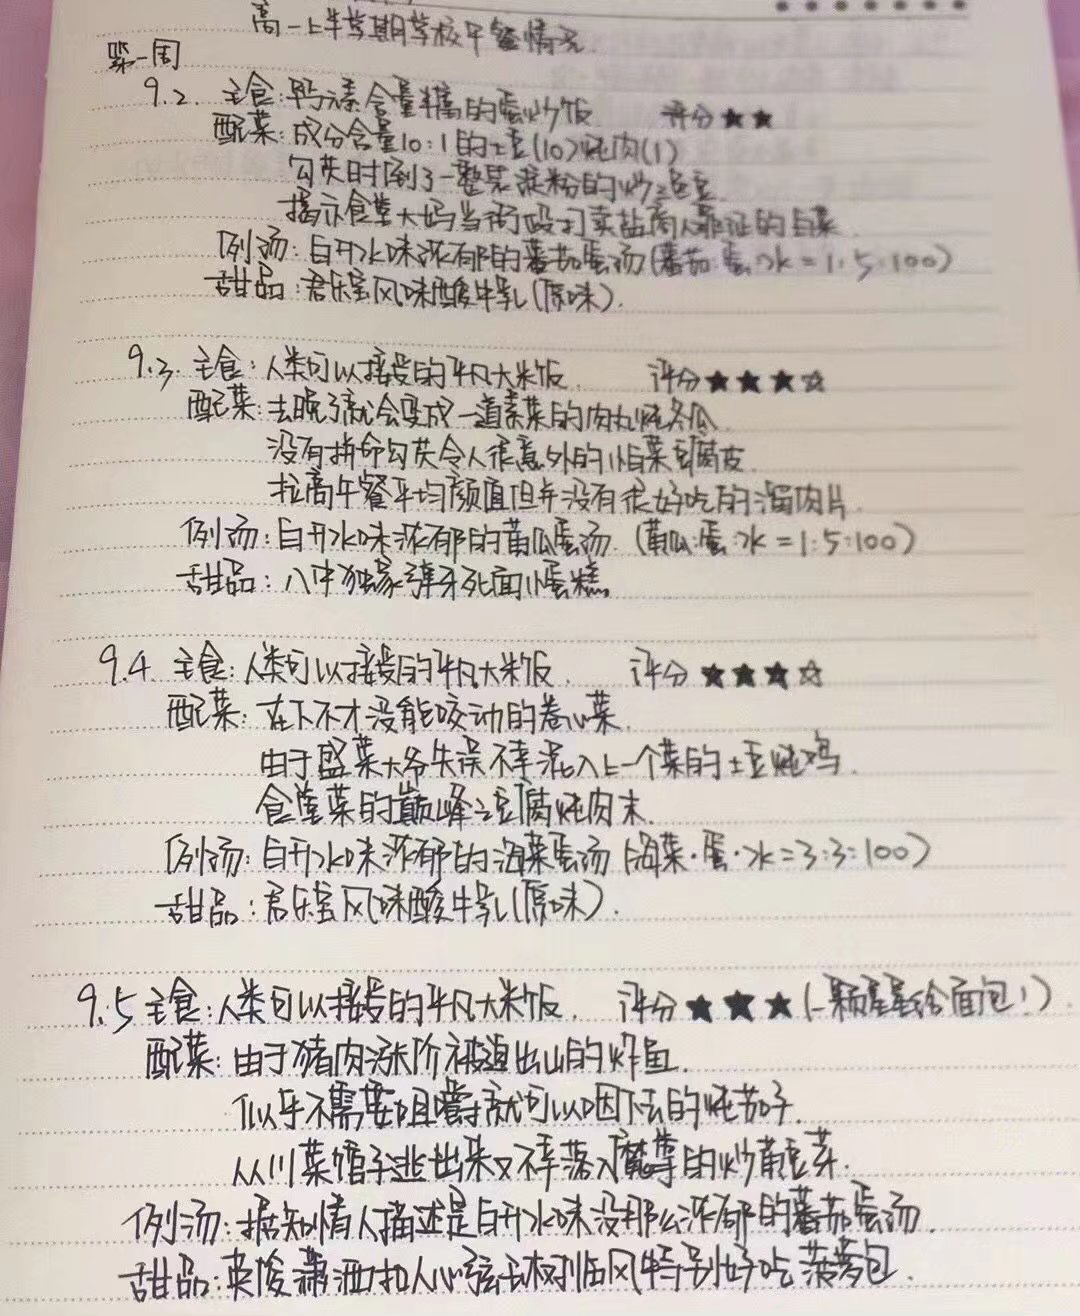 高一上半学期学校午餐情况
第一周
9.2. 主食:钙元素含量米高的蛋炒饭 评分★★
配菜:成分含量10:1的土豆(10)炖肉(1)
勾芡时倒了一整袋淀粉的炒三色豆
揭示食堂大妈当街殴打卖盐商人罪证的白菜.
例汤:白开水味浓郁的蕃茄蛋汤(蕃茄:蛋:水=1:5:100)
甜品:君乐宝风味酸牛乳(原味).
9.3. 主食:人类可以接受的平凡大米饭. 评分★★★☆
配菜:去晚了就会变成一道素菜的肉丸炖冬瓜.
没有拼命勾芡令人很意外的小白菜豆腐皮.
拉高午餐平均颜值但并没有很好吃的溜肉片.
例汤:白开水味浓郁的黄瓜蛋汤.(黄瓜:蛋:水=1:5:100)
甜品:八中独家弹牙死面小蛋糕.
9.4. 主食:人类可以接受的平凡大米饭. 评分★★★☆
配菜:在下不才没能咬动的卷心菜.
由于盛菜大爷失误不幸混入上一个菜的土豆炖鸡.
食堂菜的巅峰之豆腐炖肉末.
例汤:白开水味浓郁的海菜蛋汤(海菜:蛋:水=3:3:100)
甜品:君乐宝风味酸牛乳(原味).
9.5 主食:人类可以接受的平凡大米饭. 评分★★★(一颗星星给面包!)
配菜:由于猪肉涨价被迫出山的炸鱼.
似乎不需要咀嚼就可以咽下去的炖茄子.
从川菜馆子逃出来又不幸落入魔掌的炒黄豆芽.
例汤:据知情人描述是白开水味没那么浓郁的蕃茄蛋汤.
甜品:英俊潇洒扣人心弦玉树临风特别好吃菠萝包.